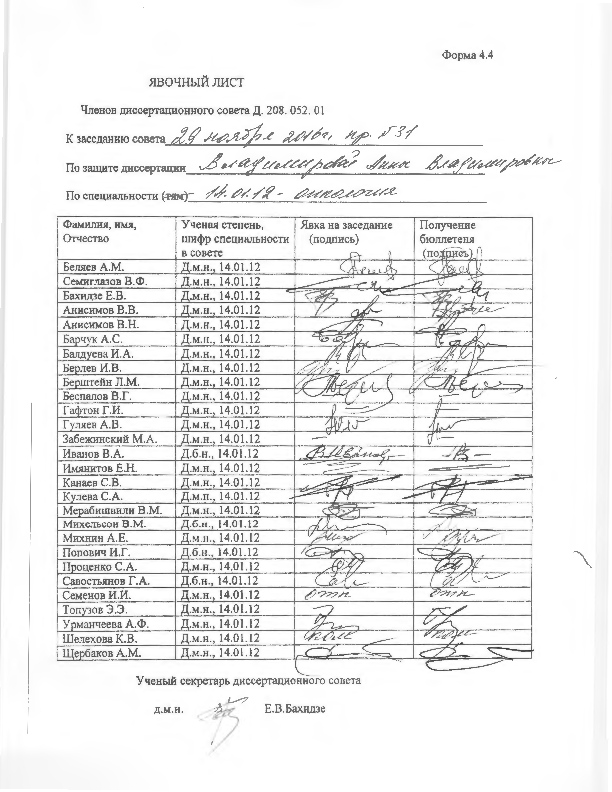 Форма 4.4
ЯВОЧНЫЙ ЛИСТ
Членов диссертационного совета Д. 208. 052. 01
К заседанию совета 29 ноября 2016г. пр. №31
По защите диссертации Владимировой Анны Владимировны
По специальности (тям) 14.01.12 - онкология
Фамилия, имя, Отчество | Ученая степень, шифр специальности в совете | Явка на заседание (подпись) | Получение бюллетеня (подпись)
Беляев А.М. Д.м.н., 14.01.12
Семиглазов В.Ф. Д.м.н., 14.01.12
Бахидзе Е.В. Д.м.н., 14.01.12
Анисимов В.В. Д.м.н., 14.01.12
Анисимов В.Н. Д.м.н., 14.01.12
Барчук А.С. Д.м.н., 14.01.12
Балдуева И.А. Д.м.н., 14.01.12
Берлев И.В. Д.м.н., 14.01.12
Берштейн Л.М. Д.м.н., 14.01.12
Беспалов В.Г. Д.м.н., 14.01.12
Гафтон Г.И. Д.м.н., 14.01.12
Гуляев А.В. Д.м.н., 14.01.12
Забежинский М.А. Д.м.н., 14.01.12
Иванов В.А. Д.б.н., 14.01.12
Имянитов Е.Н. Д.м.н., 14.01.12
Канаев С.В. Д.м.н., 14.01.12
Кулева С.А. Д.м.н., 14.01.12
Мерабишвили В.М. Д.м.н., 14.01.12
Михельсон В.М. Д.б.н., 14.01.12
Михнин А.Е. Д.м.н., 14.01.12
Попович И.Г. Д.б.н., 14.01.12
Проценко С.А. Д.м.н., 14.01.12
Савостьянов Г.А. Д.б.н., 14.01.12
Семенов И.И. Д.м.н., 14.01.12 отп отп
Топузов Э.Э. Д.м.н., 14.01.12
Урманчеева А.Ф. Д.м.н., 14.01.12
Шелехова К.В. Д.м.н., 14.01.12
Щербаков А.М. Д.м.н., 14.01.12
Ученый секретарь диссертационного совета
д.м.н. Е.В.Бахидзе